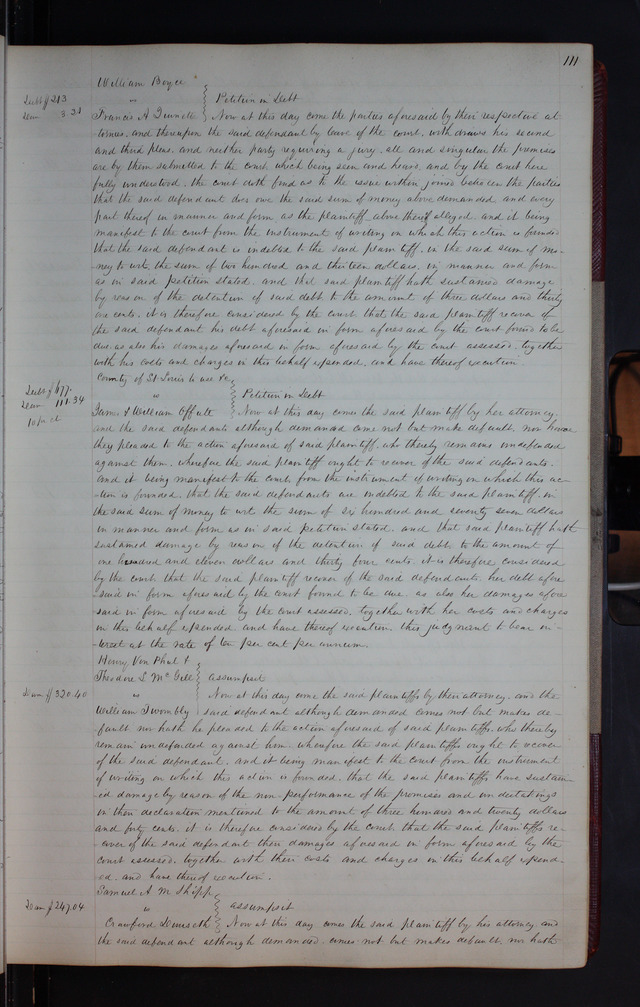 111
William Boyce
Debt $213
Dam 3.31
vs Petition in Debt
Francis A Quinette Now at this day come the parties aforesaid by their respective at
tornies, and thereupon the said defendant by leave of the court, withdraws his second
and third pleas, and neither party requiring a jury, all and singular the premises
are by them submitted to the court, which being seen and heard, and by the court here
fully understood, the court doth find as to the issue within joined between the parties
that the said defendant does owe the said sum of money above demanded, and every
part thereof in manner and form as the plaintiff above thereof alleged, and it being
manifest to the court from the instrument of writing on which this action is founded
that the said defendant is indebted to the said plaintiff, in the said sum of mo-
ney to wit, the sum of two hundred and thirteen dollars, in manner and form
as in said petition stated, and that said plaintiff hath sustained damage
by reason of the detention of said debt to the amount of three dollars and thirty
one cents. it is therefore considered by the court that the said plaintiff recover of
the said defendant his debt aforesaid in form aforesaid by the court found to be
due as also his damages aforesaid in form aforesaid by the court assessed, together
with his costs and charges in this behalf expended, and have thereof execution.
County of St Louis to use &c
Debt $677.
Dam 111.34
10 pr ct
vs Petition in Debt
James & William Offutt Now at this day comes the said plaintiff by her attorney,
and the said defendants although demanded come not but make default, nor have
they pleaded to the action aforesaid of said plaintiff, who thereby remains undefended
against them, wherefore the said plaintiff ought to recover of the said defendants.
And it being manifest to the court from the instrument of writing on which this ac-
-tion is founded, that the said defendants are indebted to the said plaintiff, in
the said sum of money to wit the sum of six hundred and seventy seven dollars
in manner and form as in said petition stated, and that said plaintiff hath
sustained damage by reason of the detention of said debt, to the amount of
one hundred and eleven dollars and thirty four cents. it is therefore considered
by the court that the said plaintiff recover of the said defendants her debt afore
said in form aforesaid by the court found to be due, as also her damages afore
said in form aforesaid by the court assessed, together with her costs and charges
in this behalf expended and have thereof execution. this judgment to bear in-
-terest at the rate of ten per cent per annum.
Henry Von Phul &
Theodore L McGill assumpsit
Dam $320.40
vs Now at this day come the said plaintiffs by their attorney, and the
William Twombly said defendant although demanded comes not but makes de-
fault nor hath he pleaded to the action aforesaid of said plaintiffs, who thereby
remain undefended against him, wherefore the said plaintiffs ought to recover
of the said defendant, and it being manifest to the court from the instrument
of writing on which this action is founded, that the said plaintiffs have sustain
-ed damage by reason of the non-performance of the promises and undertakings
in their declaration mentioned to the amount of three hundred and twenty dollars
and forty cents, it is therefore considered by the court that the said plaintiffs re-
-cover of the said defendant their damages aforesaid in form aforesaid by the
court assessed, together with their costs and charges in this behalf expend-
-ed and have thereof execution.
Samuel A M Shipp
Dam $247.04
vs assumpsit
Crawford Now at this day comes the said plaintiff by his attorney and
the said defendant although demanded, comes not but makes default, nor hath